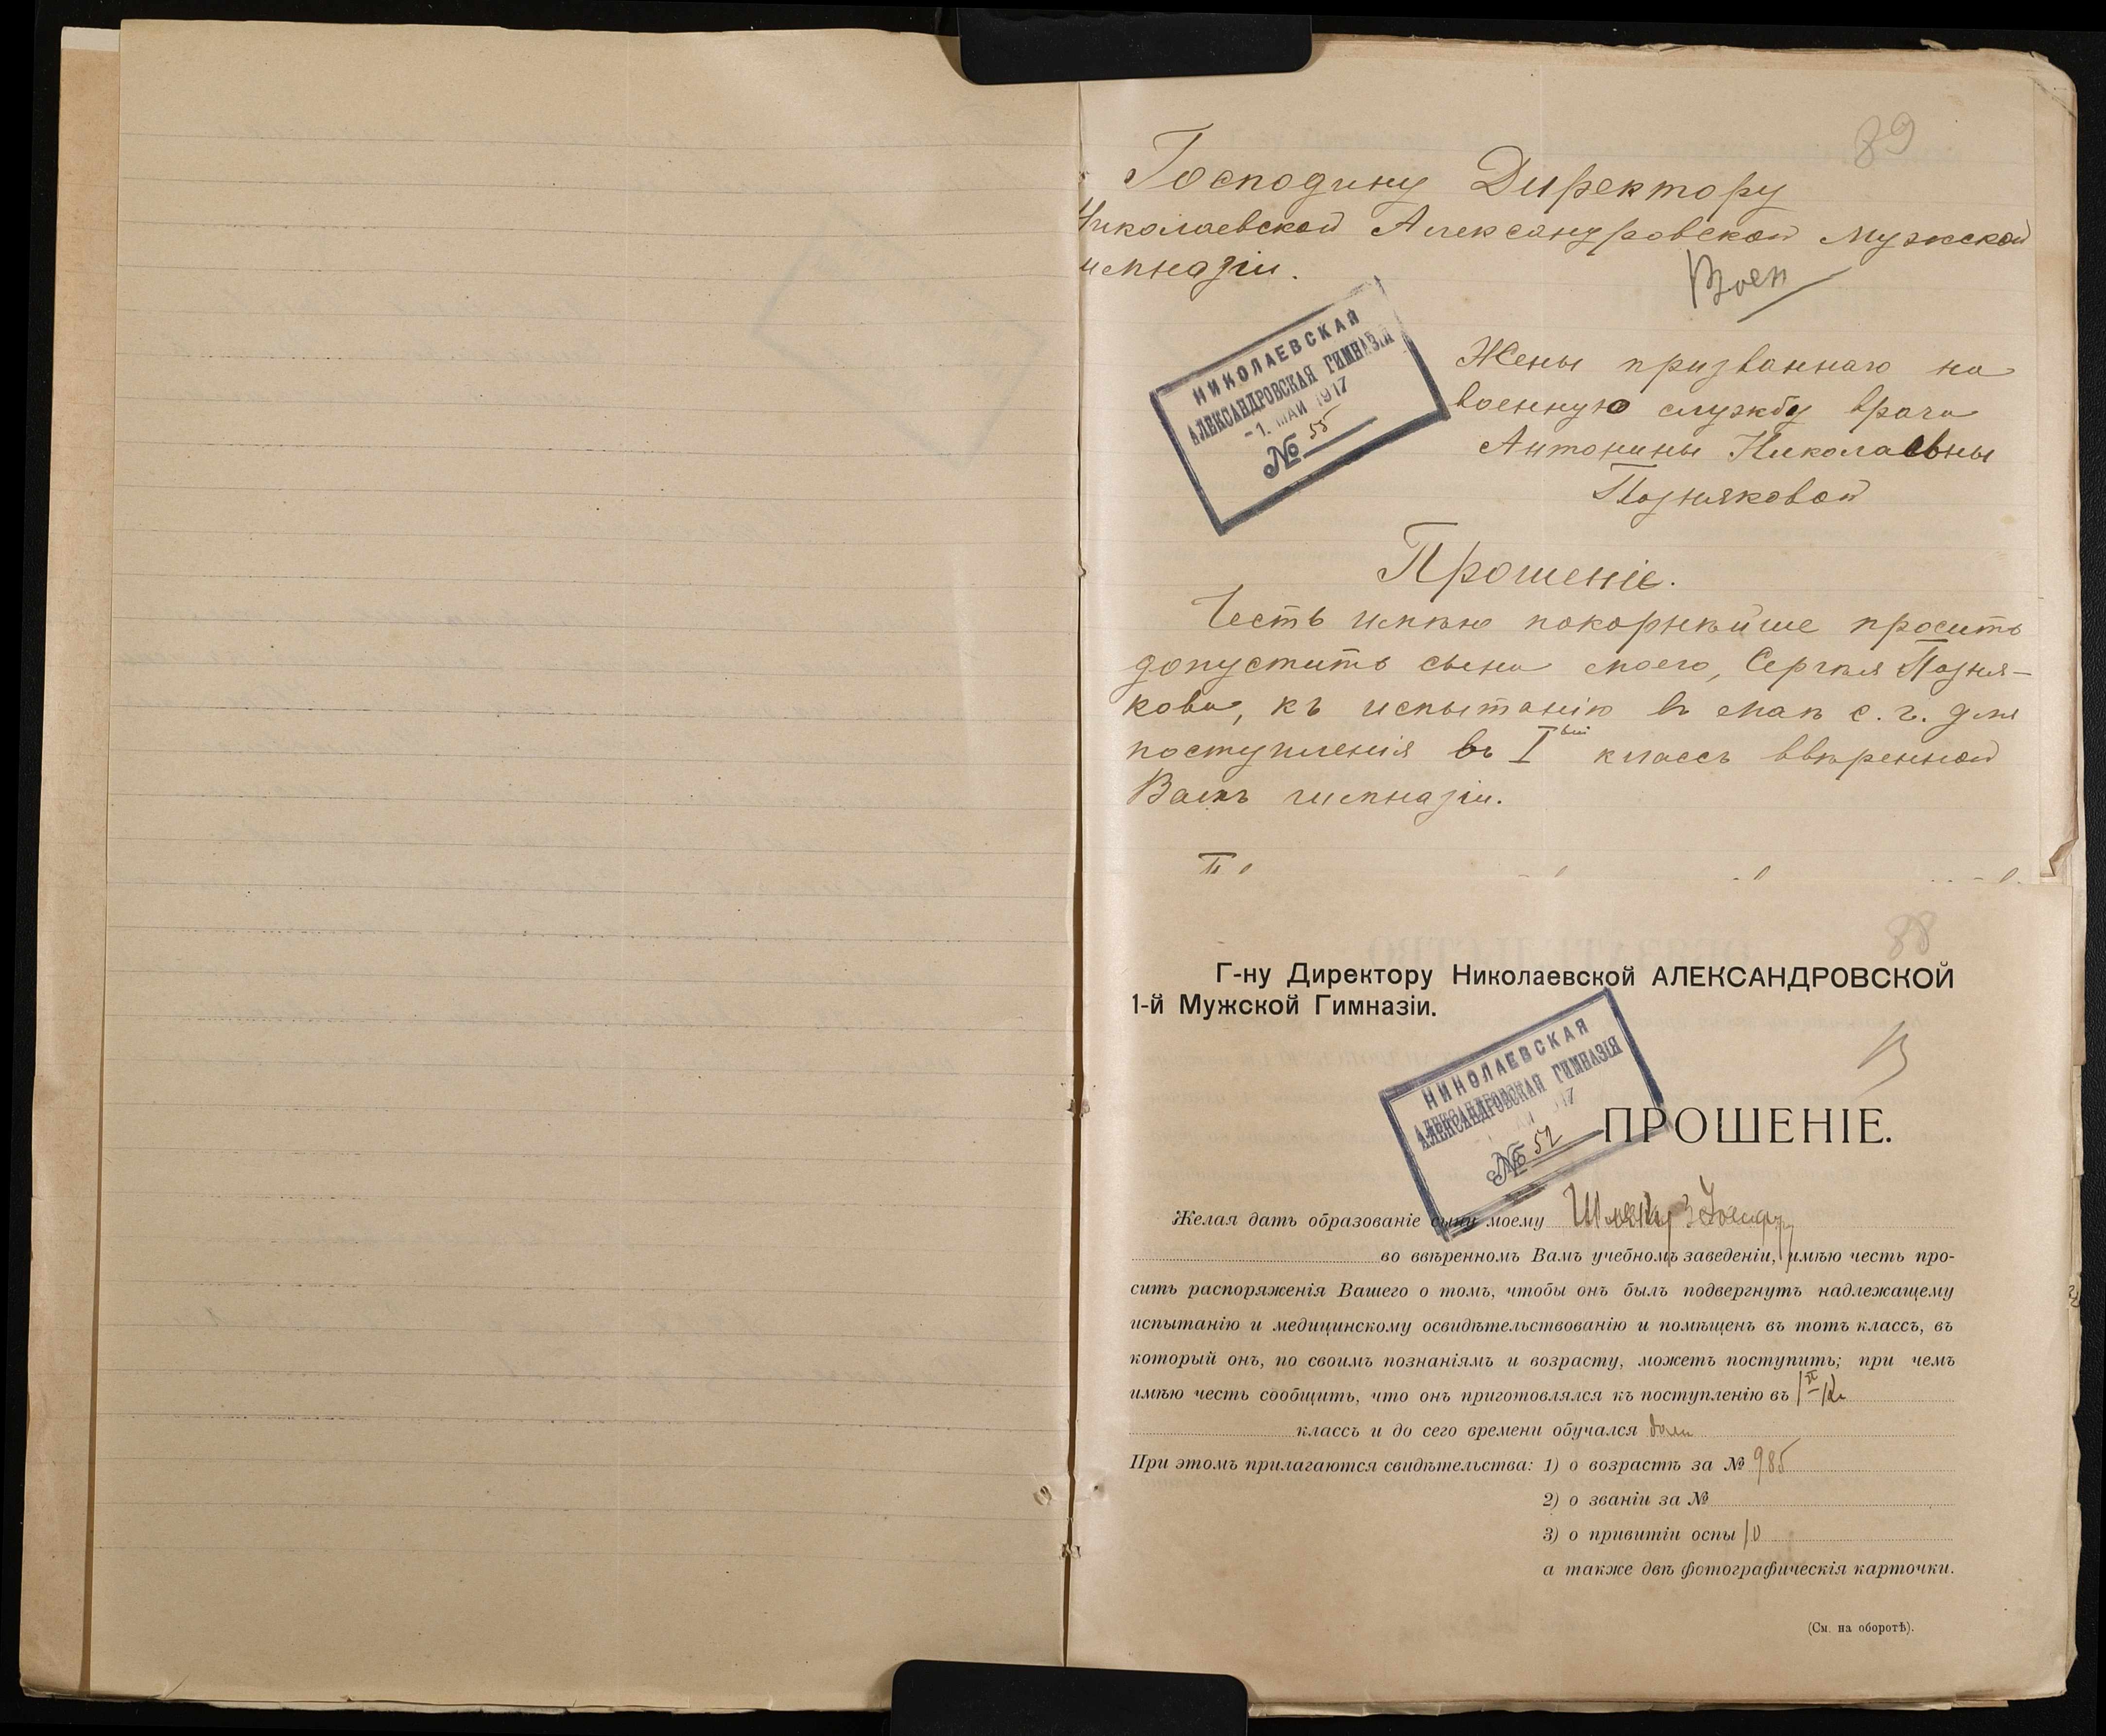 89
Господину Директору
Николаевской Александровской Мужской
имназіи.
НИКОЛАЕВСКАЯ
АЛЕКСАНДРОВСКАЯ ГИМНАЗІЯ
-1. МАЙ 1917
№ 55
Жены призваннаго на
военную службу врача
Антонины Николаевны
Поздняковой
Прошеніе.
Честь имѣю покорнѣйше просить
допустить сына моего, Сергѣя Поздня-
кова, къ испытанію въ маѣ с. г. для
поступленія въ I ый классъ ввѣренной
Вамъ гимназіи.
88
Г-ну Директору Николаевской АЛЕКСАНДРОВСКОЙ
1-й Мужской Гимназіи.
НИКОЛАЕВСКАЯ
АЛЕКСАНДРОВСКАЯ ГИМНАЗІЯ
№ 52
ПРОШЕНІЕ.
Желая дать образованіе сыну моему
во ввѣренномъ Вамъ учебномъ заведеніи, имѣю честь про-
сить распоряженія Вашего о томъ, чтобы онъ былъ подвергнутъ надлежащему
испытанію и медицинскому освидѣтельствованію и помѣщенъ въ тотъ классъ, въ
который онъ, по своимъ познаніямъ и возрасту, можетъ поступить; при чемъ
имѣю честь сообщить, что онъ приготовлялся къ поступленію въ
классъ и до сего времени обучался
При этомъ прилагаются свидѣтельства: 1) о возрастѣ за № 985
2) о званіи за №
3) о привитіи оспы
а также двѣ фотографическія карточки.
(См. на оборотѣ).